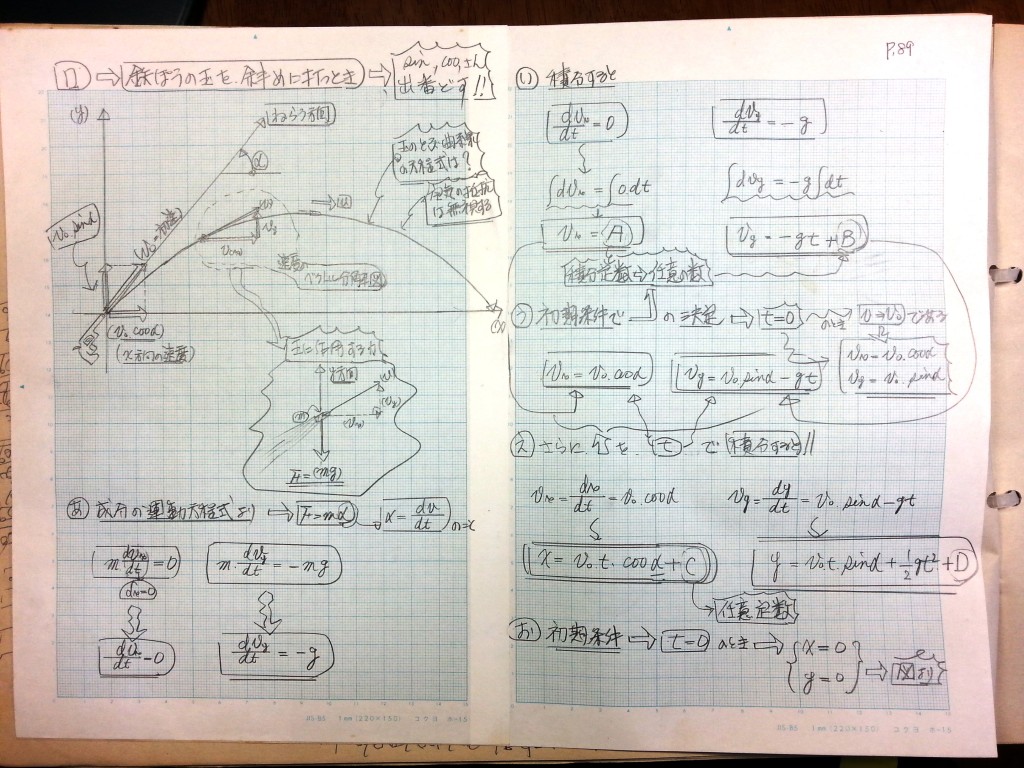 P.89
⇒ 鉄ぽうの玉を、斜めに打つとき ⇒ sin, cos, tan
出番です!!
(y)
ねらう方向
α
玉のとぶ曲線
の方程式は?
空気の抵抗
は無視する
v₀ sinα
速度の
ベクトル分解図
(x)
(v₀ cosα)
(x方向の速度)
玉に作用する力
y方向
F=(mg)
あ 成分の運動方程式より → F=mα, α=dv/dt のこと
m dvx/dt = 0
m・dvy/dt = -mg
dvx/dt = 0
dvy/dt = -g
い 積分すると
dvx/dt = 0
dvy/dt = -g
∫dvx = ∫0dt
∫dvy = -g∫dt
vx = A
vy = -gt + B
積分定数⇒任意の数
う 初期条件で の決定 ⇒ t=0 のとき v⇒v₀ である
vx = v₀.cosα
vy = v₀.sinα
vx = v₀.cosα
vy = v₀.sinα - gt
え さらに を t で 積分すると
vx = dx/dt = v₀ cosα
vy = dy/dt = v₀ sinα - gt
x = v₀.t.cosα + C
y = v₀t.sinα + ½gt² + D
任意定数
お 初期条件 ⇒ t=0 のとき ⇒ { x=0
y=0 } ⇒ 図より
JIS-B5 1mm (220×150) コクヨ ホ-15
JIS-B5 1mm (220×150) コクヨ ホ-15